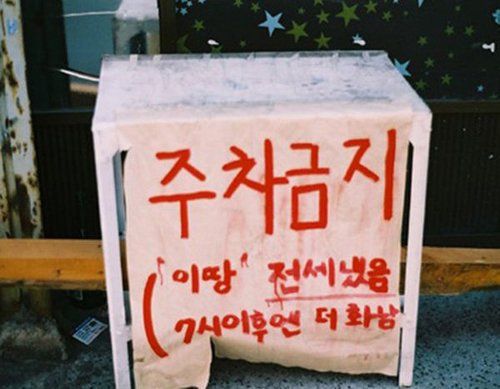 주차금지
"이땅" 전세냈음
(7시이후엔 더 화남